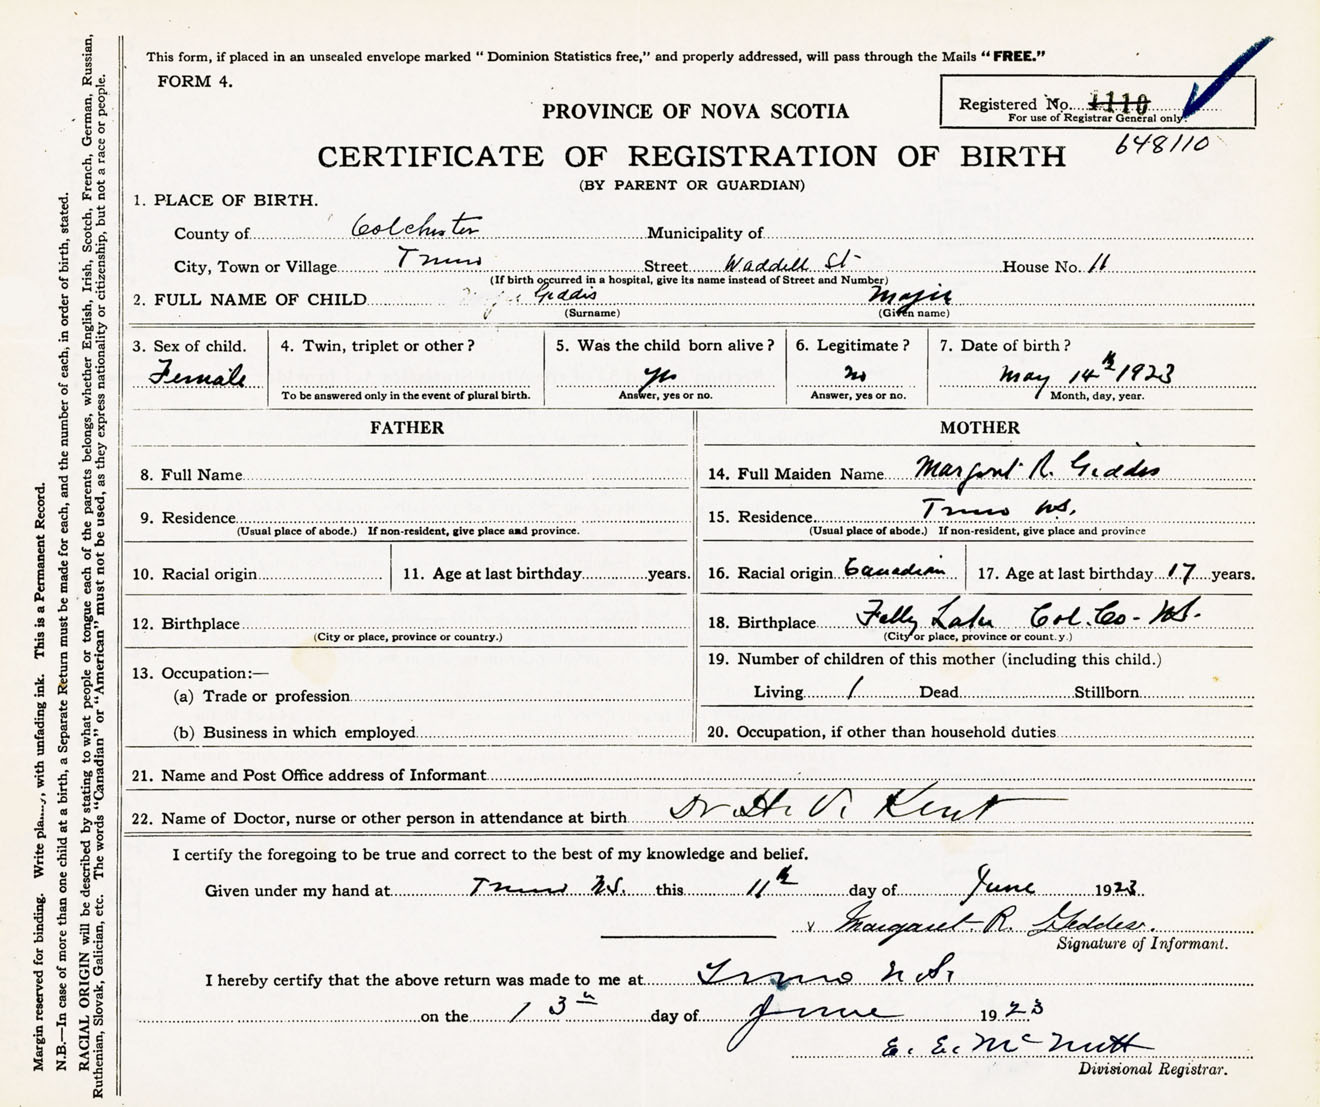 This form, if placed in an unsealed envelope marked "Dominion Statistics free," and properly addressed, will pass through the Mails "FREE."
FORM 4.
Registered No. 1110
For use of Registrar General only.
648110
PROVINCE OF NOVA SCOTIA
CERTIFICATE OF REGISTRATION OF BIRTH
(BY PARENT OR GUARDIAN)
1. PLACE OF BIRTH.
County of Colchester Municipality of
City, Town or Village Truro Street Waddell St House No. 11
(If birth occurred in a hospital, give its name instead of Street and Number)
2. FULL NAME OF CHILD Geddis Majie
(Surname) (Given name)
3. Sex of child. 4. Twin, triplet or other? 5. Was the child born alive? 6. Legitimate? 7. Date of birth?
Female yes no May 14th 1923
To be answered only in the event of plural birth. Answer, yes or no. Answer, yes or no. Month, day, year.
FATHER
8. Full Name
9. Residence
(Usual place of abode.) If non-resident, give place and province.
10. Racial origin 11. Age at last birthday years.
12. Birthplace
(City or place, province or country.)
13. Occupation:—
(a) Trade or profession
(b) Business in which employed
MOTHER
14. Full Maiden Name Margaret R. Geddes
15. Residence Truro N.S.
(Usual place of abode.) If non-resident, give place and province
16. Racial origin Canadian 17. Age at last birthday 17 years.
18. Birthplace Folly Lake Col. Co- N.S.
(City or place, province or count.y.)
19. Number of children of this mother (including this child.)
Living 1 Dead Stillborn
20. Occupation, if other than household duties
21. Name and Post Office address of Informant
22. Name of Doctor, nurse or other person in attendance at birth Dr H. V. Kent
I certify the foregoing to be true and correct to the best of my knowledge and belief.
Given under my hand at Truro N.S. this 11th day of June 1923.
v Margaret. R. Geddes.
Signature of Informant.
I hereby certify that the above return was made to me at Truro N.S.
on the 13th day of June 1923
E. E. McNutt
Divisional Registrar.
Margin reserved for binding. Write pla....y, with unfading ink. This is a Permanent Record.
N.B.—In case of more than one child at a birth, a Separate Return must be made for each, and the number of each, in order of birth, stated.
RACIAL ORIGIN will be described by stating to what people or tongue each of the parents belongs, whether English, Irish, Scotch, French, German, Russian,
Ruthenian, Slovak, Galician, etc. The words "Canadian" or "American" must not be used, as they express nationality or citizenship, but not a race or people.